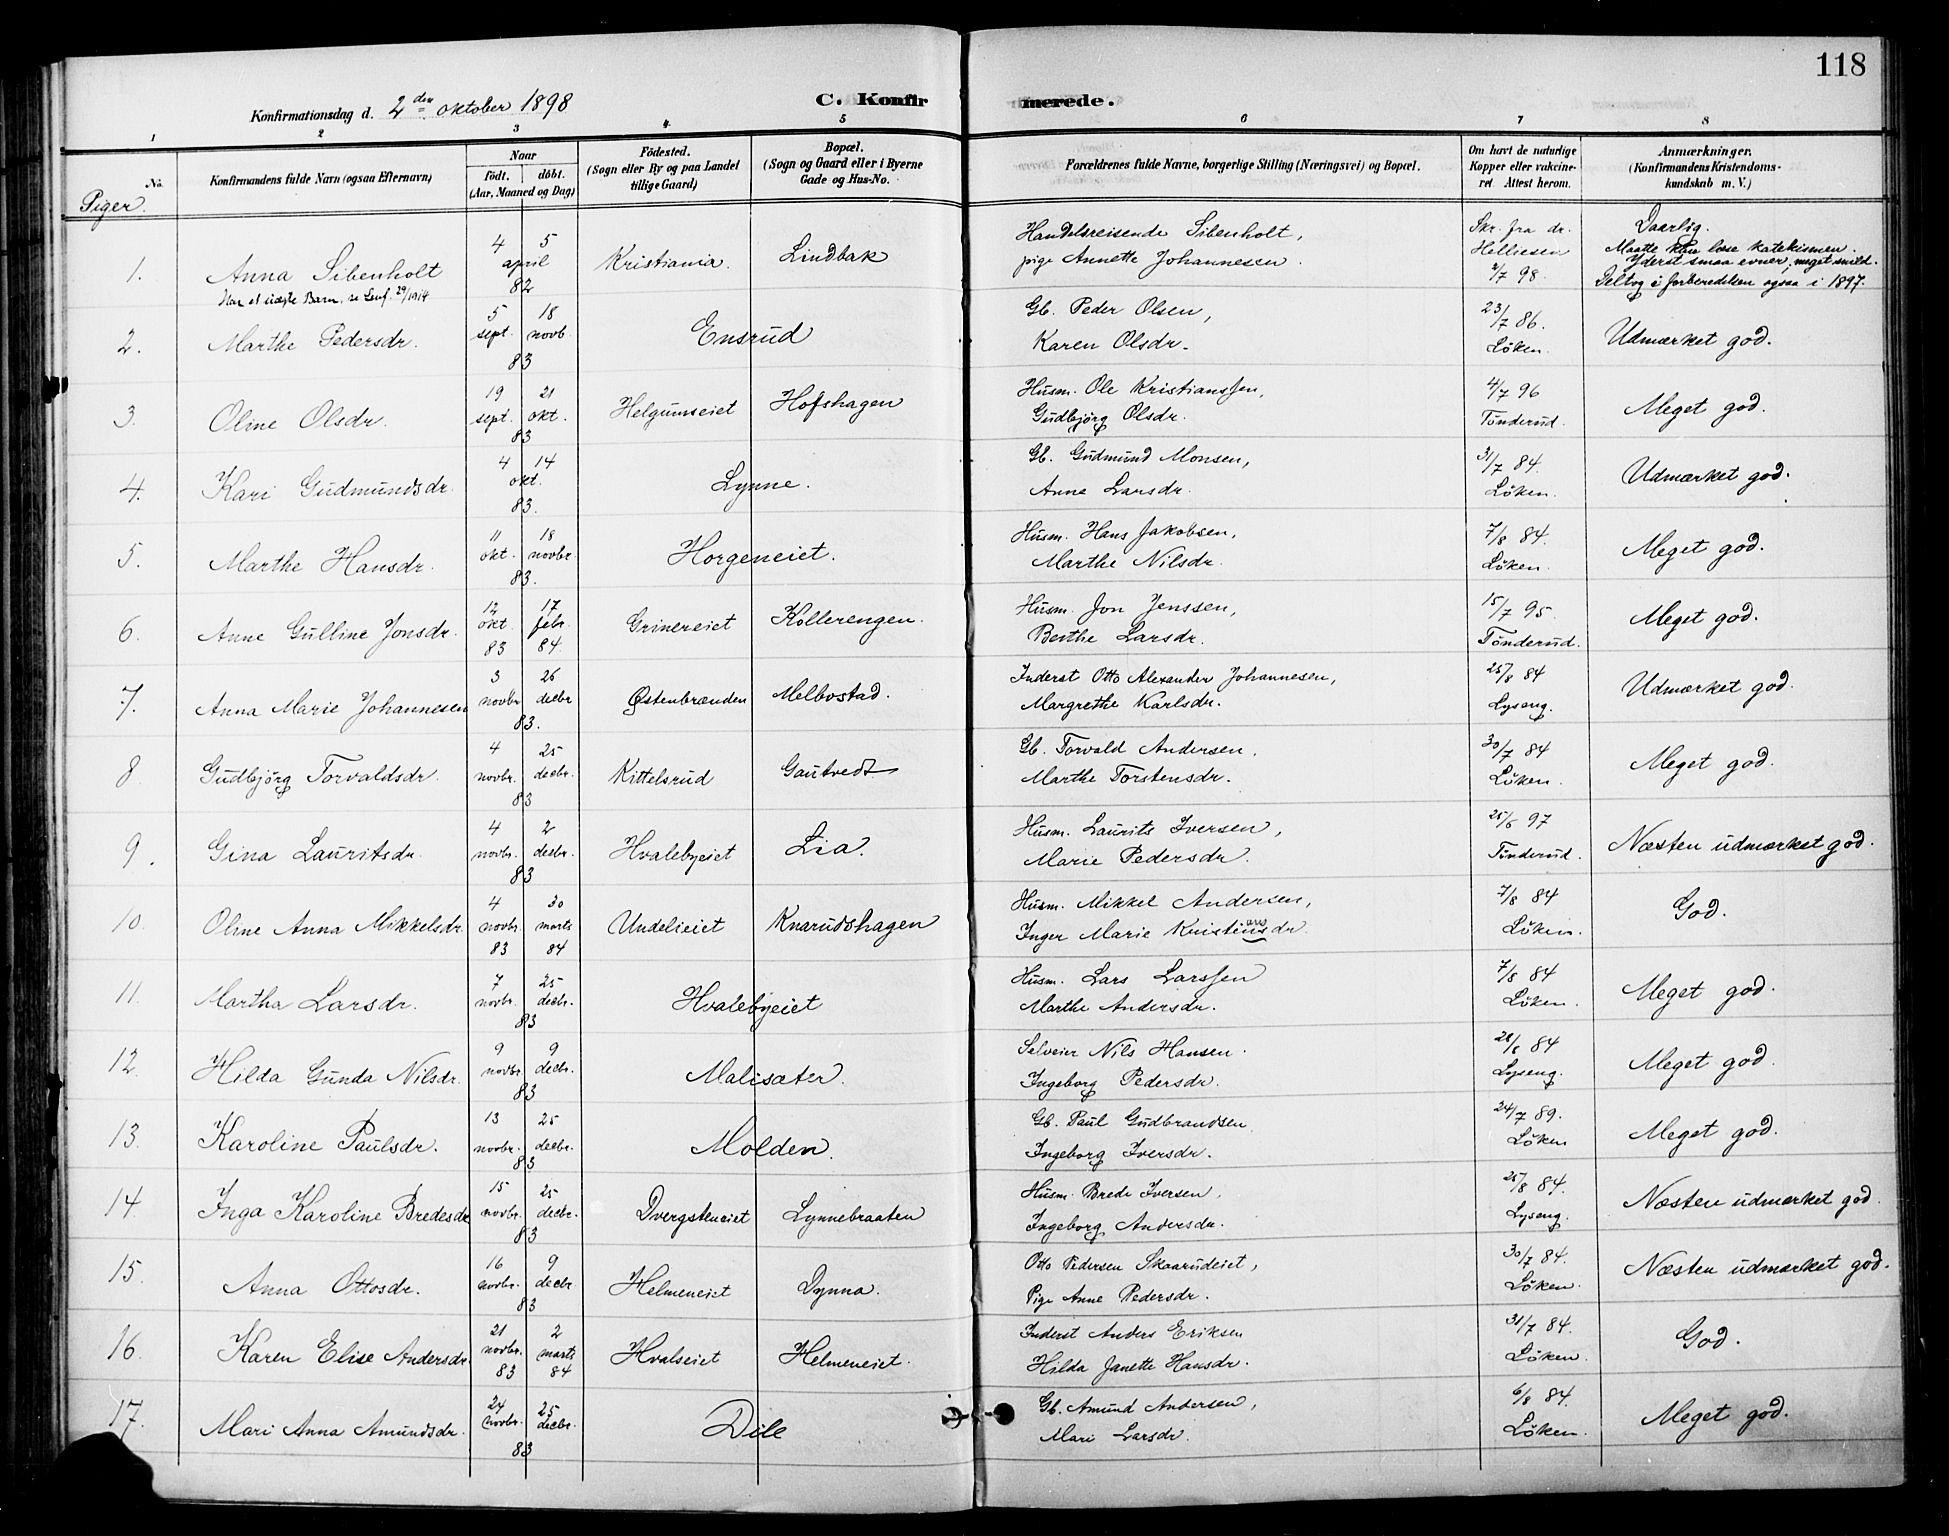 118
Konfirmationsdag d. 2den oktober 1898
C. Konfirmerede.
1 2 3 4 5 6 7 8
No. Konfirmandens fulde Navn (ogsaa Efternavn) Naar født. døbt. (Aar, Maaned og Dag) Fødested. (Sogn eller By og paa Landet tillige Gaard) Bopæl. (Sogn og Gaard eller i Byerne Gade og Hus-No. Forældrenes fulde Navne, borgerlige Stilling (Næringsvei) og Bopæl. Om havt de naturlige Kopper eller vakcineret. Attest herom. Anmærkninger. (Konfirmandens Kristendomskundskab m. V.)
Piger.
1. Anna Sibenholt 4 5 april 82 Kristiania. Lindbak Handelsreisende Sibenholt, pige Annette Johannesen. Skr. fra dr. Helliesen 2/7 98 Daarlig. Maatte læse katekismen. Yderst smaa evner, meget snild. Deltog i forberedelsen ogsaa i 1897.
Har et uægte Barn, se 29/1914
2. Marthe Pedersdr. 5 sept. 18 novb. 83 Ensrud Gb. Peder Olsen, Karen Olsdr. 23/7 86. Löken. Udmærket god.
3. Oline Olsdr. 19 sept. 21 okt. 83 Helgumseiet Hofshagen Husm. Ole Kristianssen, Gudbjörg Olsdr. 4/7 96 Tönderud. Meget god.
4. Kari Gudmundsdr. 4 14 okt. 83. Lynne. Gb. Gudmund Monsen, Anne Larsdr. 31/7 84. Löken. Udmærket god.
5. Marthe Hansdr. 11 okt. 18 novbr. 83. Horgeneiet. Husm. Hans Jakobsen, Marthe Nilsdr. 7/8 84. Löken. Meget god.
6. Anne Gulline Jonsdr. 12 okt. 83 17 febr. 84. Grinereiet Kollerengen. Husm. Jon Jenssen, Berthe Larsdr. 15/7 95. Tönderud. Meget god.
7. Anna Marie Johannesen 3 novbr. 26 decbr. 83. Østenbrænden Melbostad. Inderst Otto Alexander Johannesen, Margrethe Karlsdr. 25/8 84 Lyseng. Udmærket god.
8. Gudbjörg Torvaldsdr. 4 novbr. 25 decbr. 83 Kittelsrud Gautvedt Gb. Torvald Andersen, Marthe Torstensdr. 30/7 84 Löken. Meget god.
9. Gina Lauritsdr. 4 novbr. 2 decbr. 83 Hvalebyeiet Lia. Husm. Laurits Iversen, Marie Pedersdr. 25/6 97 Tönderud. Næsten udmærket god.
10. Oline Anna Mikkelsdr. 4 novbr. 83 30 marts 84 Undelieiet Knarudshagen Husm. Mikkel Andersen, Inger Marie 7/8 84 Löken. God.
11. Martha Larsdr. 7 novbr. 25 decbr. 83 Hvalebyeiet Husm. Lars Larssen Marthe Andersdr. 7/8 84 Löken. Meget god.
12. Hilda Gunda Nilsdr. 9 novbr. 9 decbr. 83 Malisæter. Selveier Nils Hansen. Ingeborg Pedersdr. 28/8 84 Lyseng. Meget god.
13. Karoline Paulsdr. 13 novbr. 25 decbr. 83 Molden. Gb. Paul Gudbrandsen Ingeborg Iversdr. 24/7 89. Löken Meget god.
14. Inga Karoline Bredesdr. 15 novbr. 25 decbr. 83 Dvergsteneiet Lynnebraaten Husm. Brede Iversen, Ingeborg Andersdr. 25/8 84. Lyseng. Næsten udmærket god.
15. Anna Ottosdr. 16 novbr. 9 decbr. 83 Helmeneiet Dynna. Otto Pedersen Skaarudeiet, Pige Anne Pedersdr. 30/7 84. Löken. Næsten udmærket god.
16. Karen Elise Andersdr. 21 novbr. 83 2 marts 84 Hvalseiet Helmeneiet. Inderst Anders Eriksen Hilda Janette Hansdr. 31/7 84. Löken. God.
17. Mari Anna Amundsdr. 24 novbr. 25 decbr. 83 Dile Gb. Amund Andersen, Mari Larsdr. 6/8 84. Löken. Meget god.